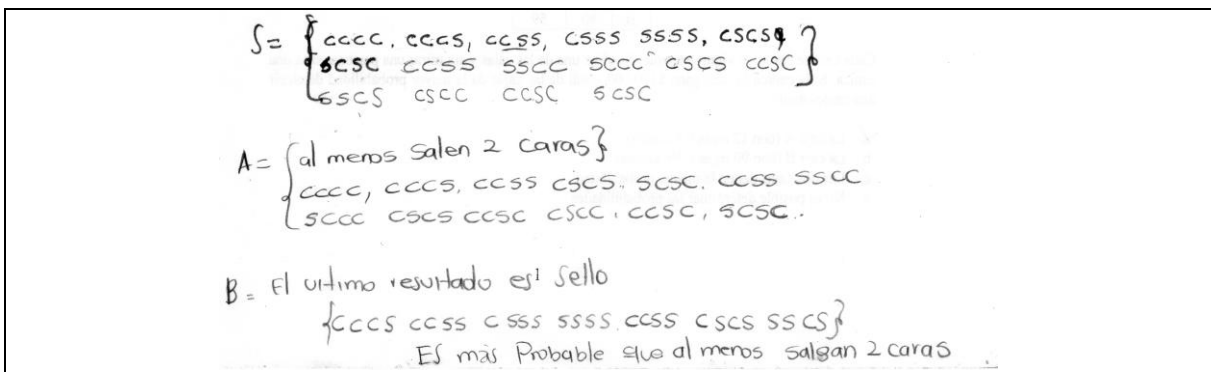 S = { cccc, cccs, ccss, csss ssss, cscs
scsc ccss sscc sccc cscs ccsc }
sscs cscc ccsc scsc
A = { al menos salen 2 caras }
cccc, cccs, ccss cscs. scsc. ccss sscc
sccc cscs ccsc cscc, ccsc, scsc.
B = El ultimo resultado es sello
{ cccs ccss csss ssss ccss cscs sscs }
ES más Probable que al menos salgan 2 caras